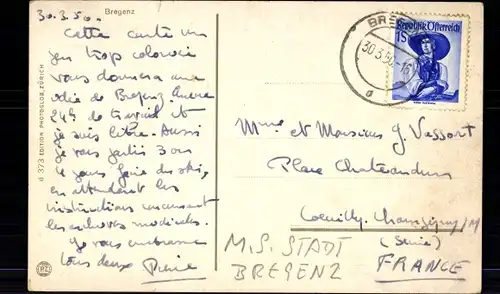 30.3.50.
Bregenz
Cette carte un
peu trop coloriée
vous donnera une
idée de Bregenz. Encore
24h de travail et
je suis libre. Aussi
je vais partir 3 ou
4 jours faire du ski,
en attendant les
instructions concernant
les archives médicales.
Je vous embrasse
tous deux Pierre
d 373 EDITION PHOTOGLOB, ZÜRICH
PZ
BREGENZ
30.3.50.-16
d
Republik Österreich
1S
Mme et Monsieur J. Vassort
Place
(Seine)
FRANCE
M.S. STADT
BREGENZ